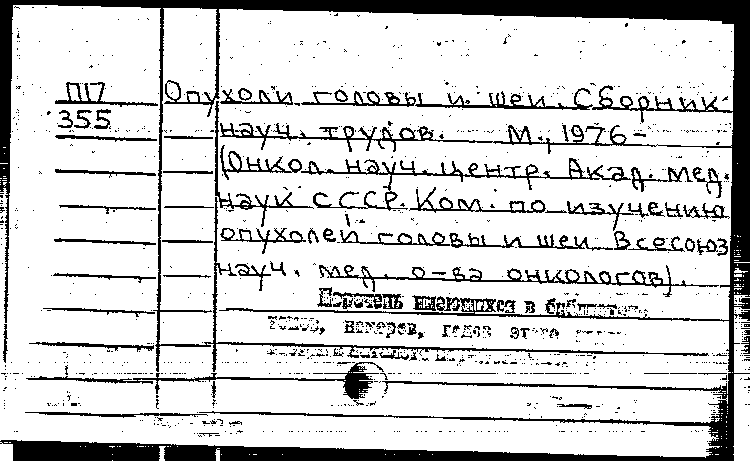 П17 Опухоли головы и шеи. Сборник
355 науч. трудов. М., 1976-
(Онкол. науч. центр. Акад. мед.
наук СССР. Ком. по изучению
опухолей головы и шеи Всесоюз
науч. мед. о-ва онкологов).
Перечень имеющихся в
томов, номеров, годов этого